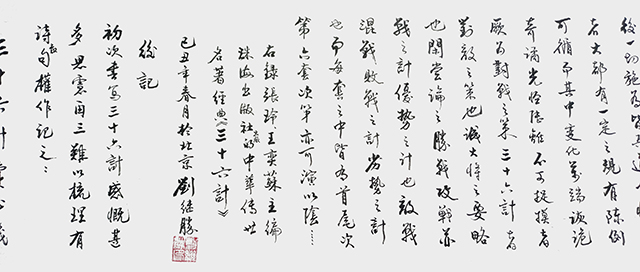 後一切施為皆是
者大都有一定之規有陳例
可循而其中變化萬端詼詭
奇譎光怪陸離不可捉摸者
厥為對戰之策三十六計者
對敵之策也誠大將之要略
也閑嘗論之勝戰攻戰並
戰之計優勢之計也敵戰
混戰敗戰之計劣勢之計
也而每套之中皆有首尾次
第六套次第亦可演以陰……
右錄張玲王奕蘇主編
珠海出版社出版的中華傳世
名著經典《三十六計》
己丑年春月於北京劉繼勝
後記
初次書寫三十六計感慨甚
多思慮再三難以梳理有
詩數句權作記之：
三十六計